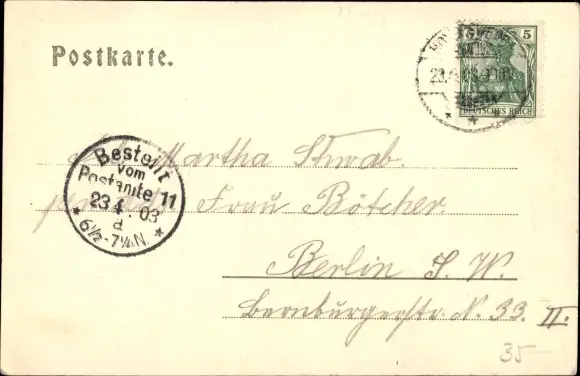 Postkarte.
5
DEUTSCHES REICH
23.
Bestellt
vom
Postamte 11
23 4 03
6½-7¼N.
Martha Schwab.
Frau Bötcher.
Berlin S. W.
Bernburgerstr. N. 33. II.
35-